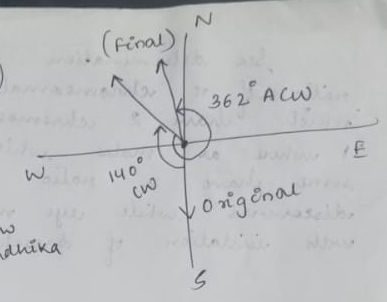 N
(Final)
)
362° ACW
E
W
140°
CW
Original
w
adhika
S